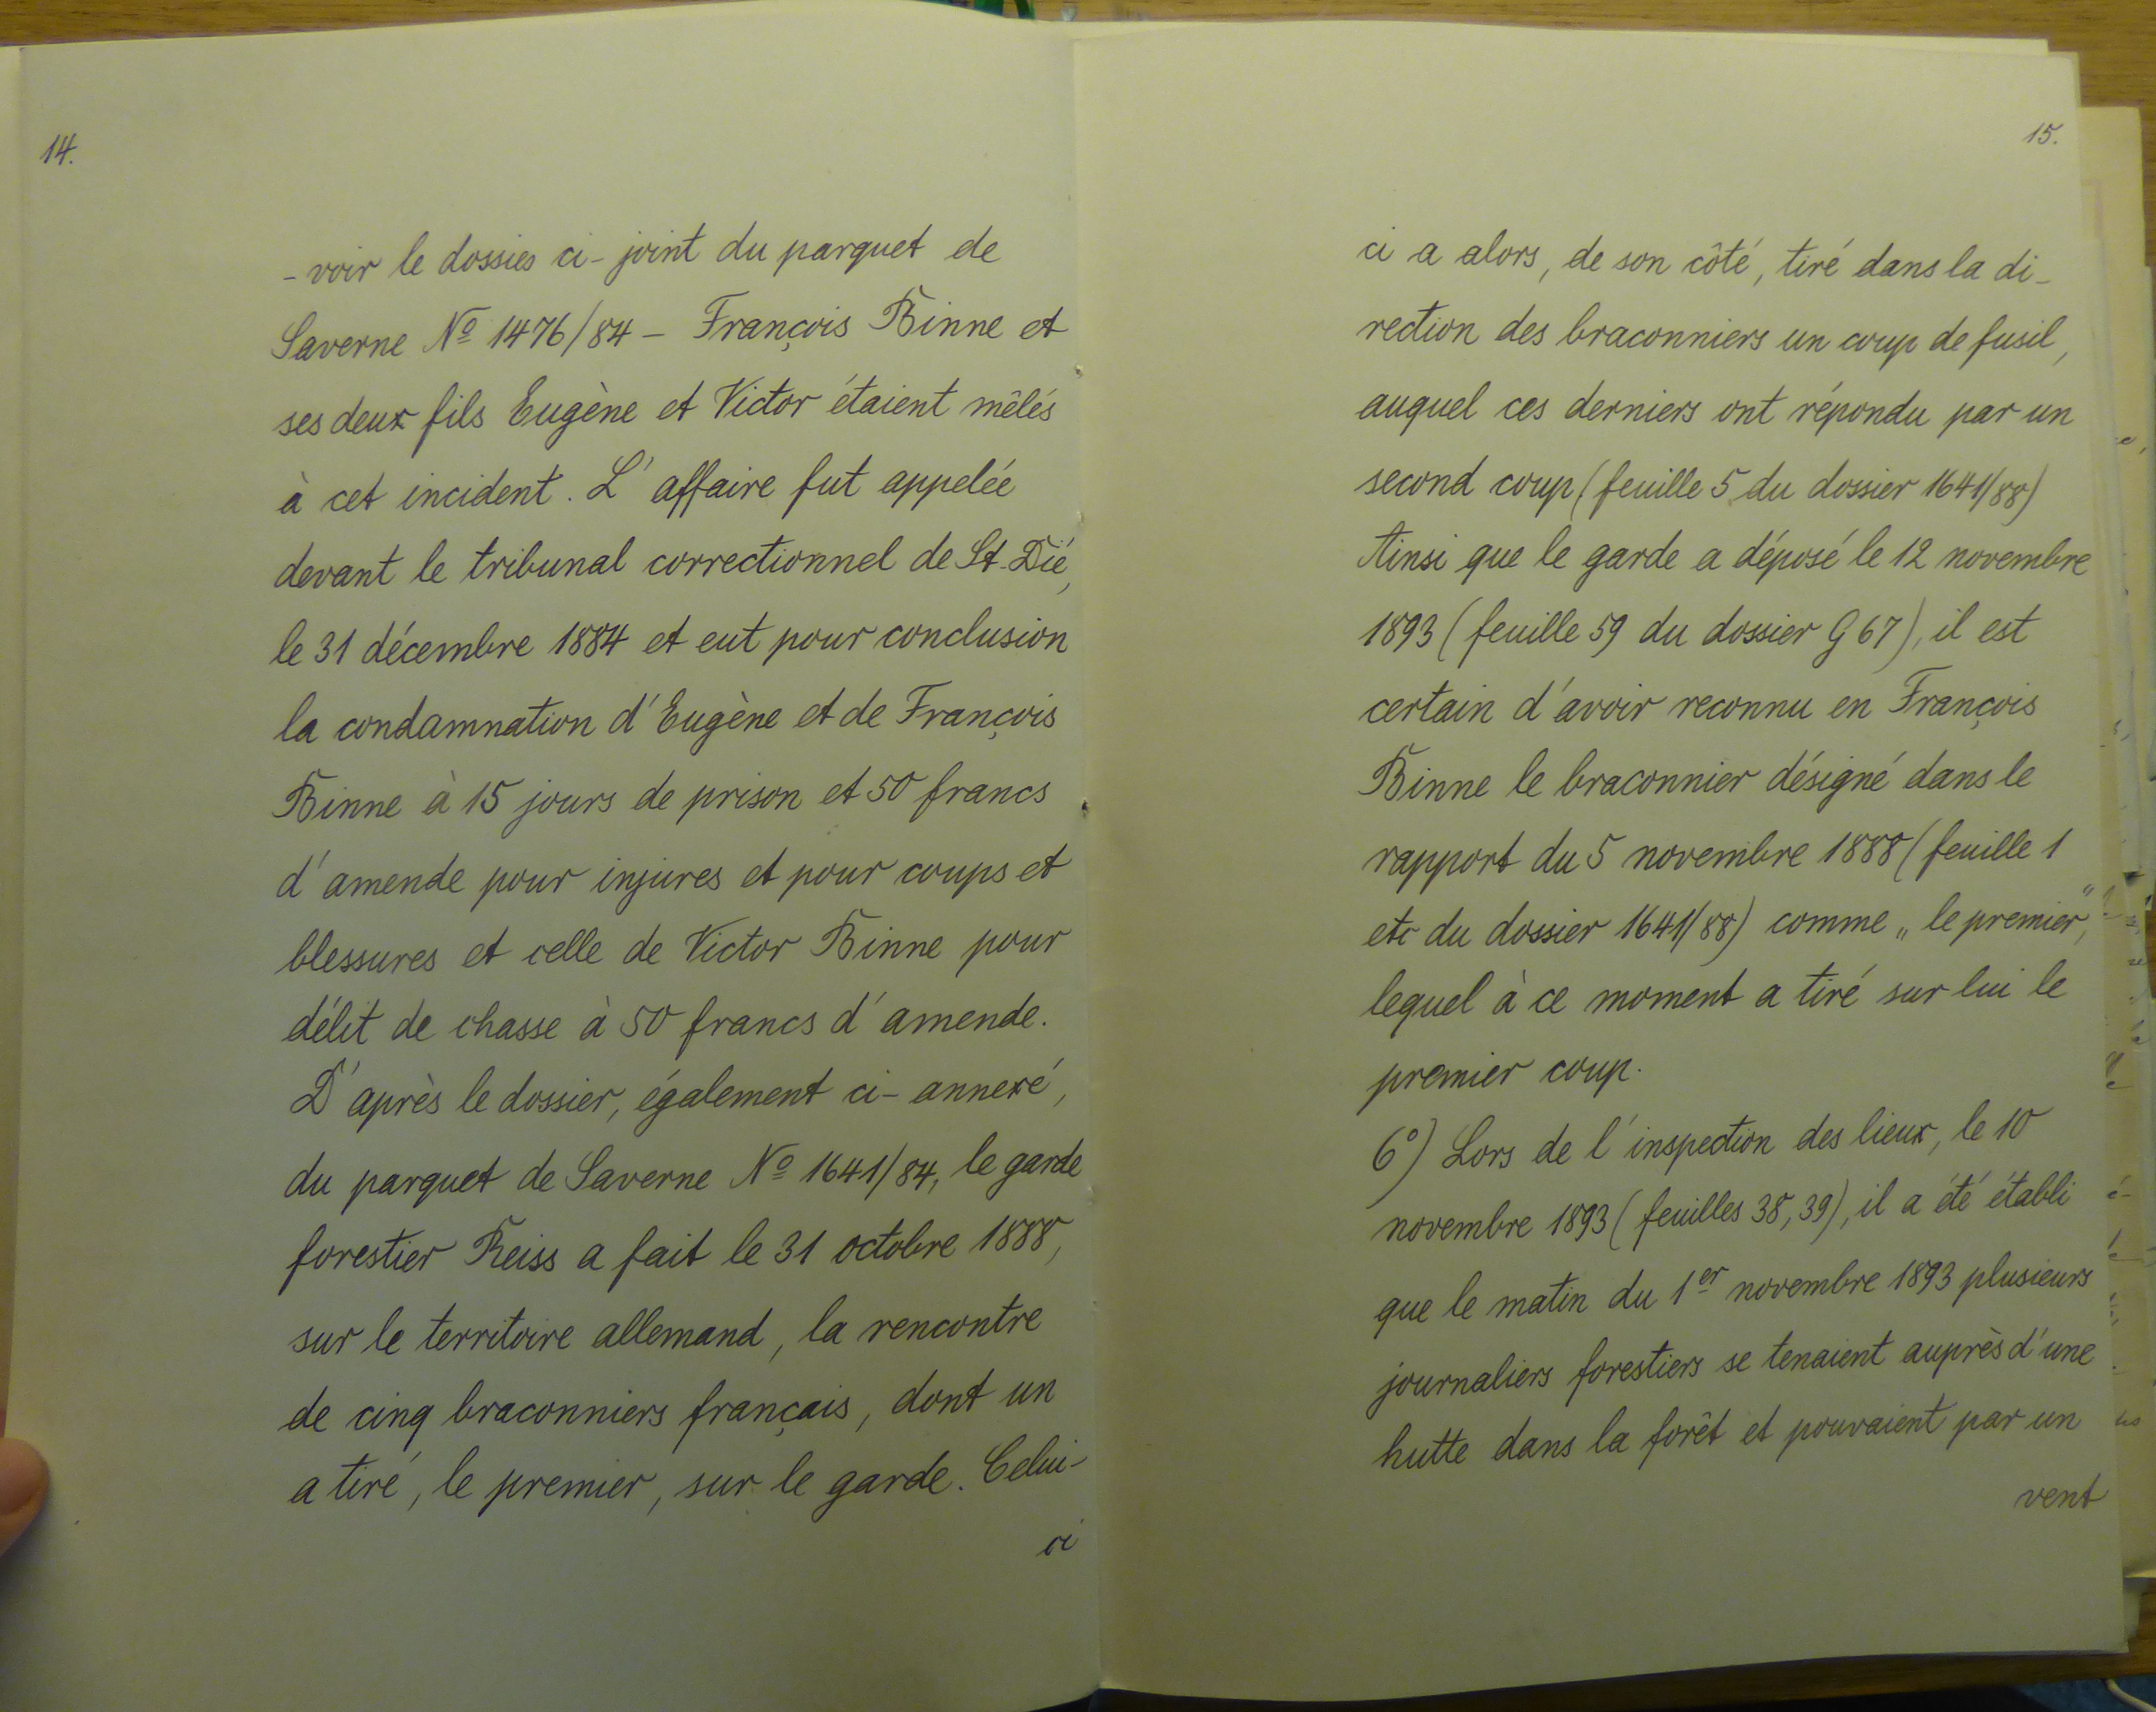 14.
- voir le dossies ci-joint du parquet de
Saverne Nº 1476/84 - François Binne et
ses deux fils Eugène et Victor étaient mêlés
à cet incident. L'affaire fut appelée
devant le tribunal correctionnel de St. Dié,
le 31 décembre 1884 et eut pour conclusion
la condamnation d'Eugène et de François
Binne à 15 jours de prison et 50 francs
d'amende pour injures et pour coups et
blessures et celle de Victor Binne pour
délit de chasse à 50 francs d'amende.
D'après le dossier, également ci-annexé,
du parquet de Saverne Nº 1641/84, le garde
forestier Reiss a fait le 31 octobre 1888,
sur le territoire allemand, la rencontre
de cinq braconniers français, dont un
a tiré, le premier, sur le garde. Celui-
ci
15.
ci a alors, de son côté, tiré dans la di-
rection des braconniers un coup de fusil,
auquel ces derniers ont répondu par un
second coup (feuille 5 du dossier 1641/88)
Ainsi que le garde a déposé le 12 novembre
1893 (feuille 59 du dossier G 67), il est
certain d'avoir reconnu en François
Binne le braconnier désigné dans le
rapport du 5 novembre 1888 (feuille 1
etc du dossier 1641/88) comme „le premier",
lequel à ce moment a tiré sur lui le
premier coup.
6°) Lors de l'inspection des lieux, le 10
novembre 1893 (feuilles 38, 39), il a été établi
que le matin du 1er novembre 1893 plusieurs
journaliers forestiers se tenaient auprès d'une
hutte dans la forêt et pouvaient par un
vent